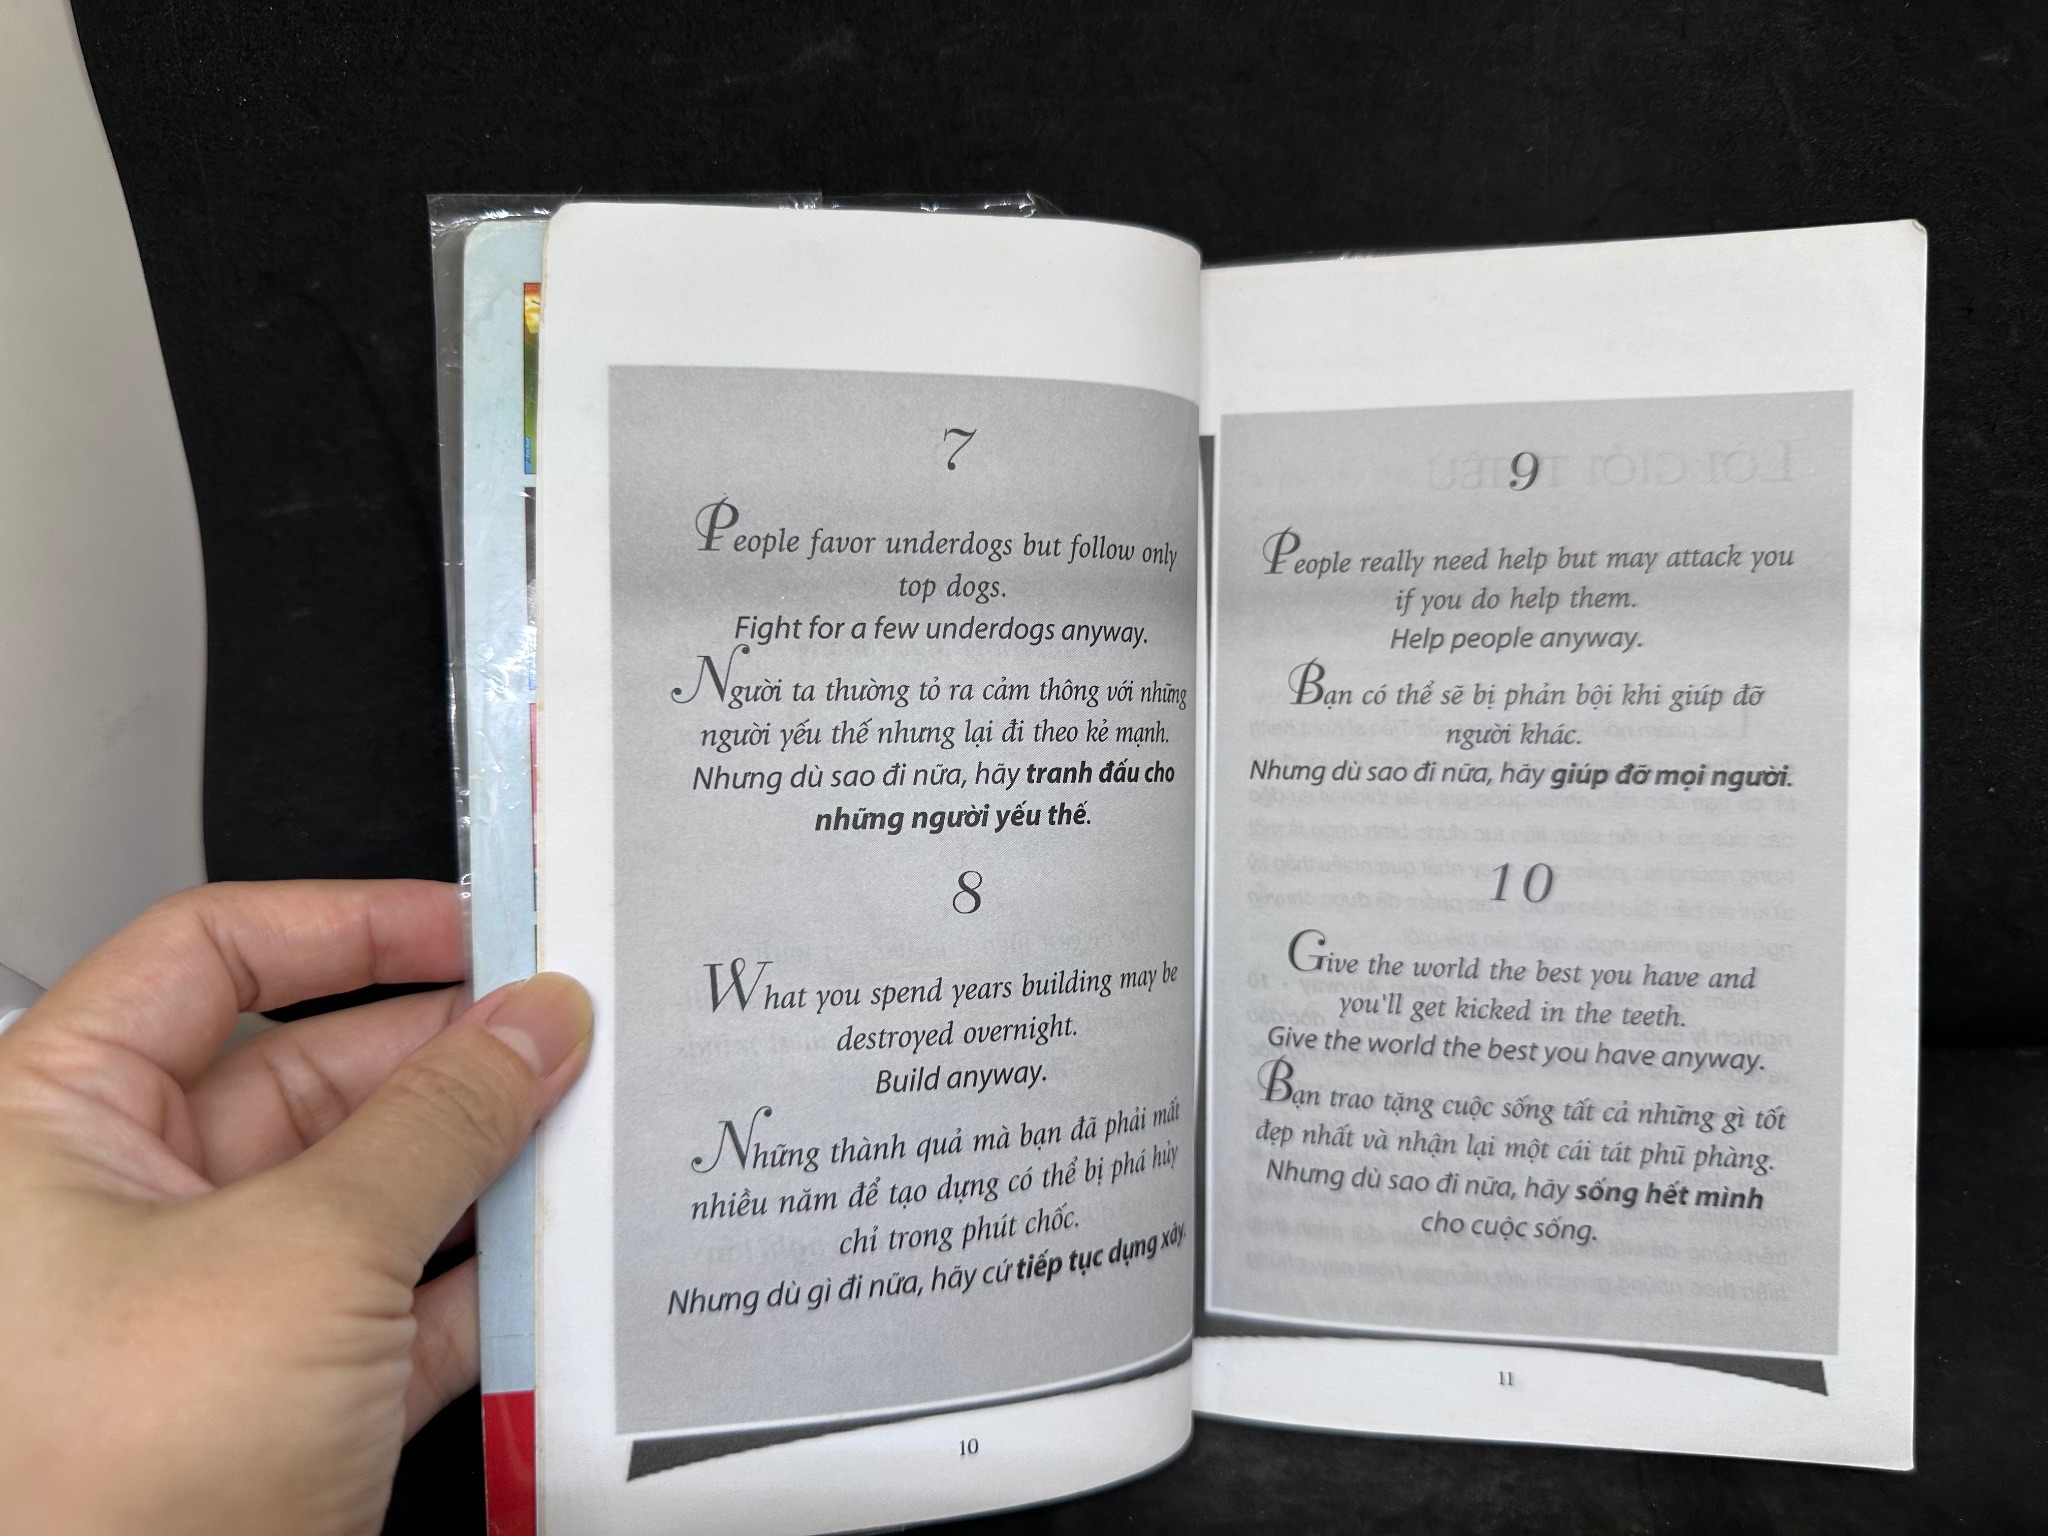 7
People favor underdogs but follow only
top dogs.
Fight for a few underdogs anyway.
Người ta thường tỏ ra cảm thông với những
người yếu thế nhưng lại đi theo kẻ mạnh.
Nhưng dù sao đi nữa, hãy tranh đấu cho
những người yếu thế.
8
What you spend years building may be
destroyed overnight.
Build anyway.
Những thành quả mà bạn đã phải mất
nhiều năm để tạo dựng có thể bị phá hủy
chỉ trong phút chốc.
Nhưng dù gì đi nữa, hãy cứ tiếp tục dựng xây.
10
9
People really need help but may attack you
if you do help them.
Help people anyway.
Bạn có thể sẽ bị phản bội khi giúp đỡ
người khác.
Nhưng dù sao đi nữa, hãy giúp đỡ mọi người.
10
Give the world the best you have and
you'll get kicked in the teeth.
Give the world the best you have anyway.
Bạn trao tặng cuộc sống tất cả những gì tốt
đẹp nhất và nhận lại một cái tát phũ phàng.
Nhưng dù sao đi nữa, hãy sống hết mình
cho cuộc sống.
11